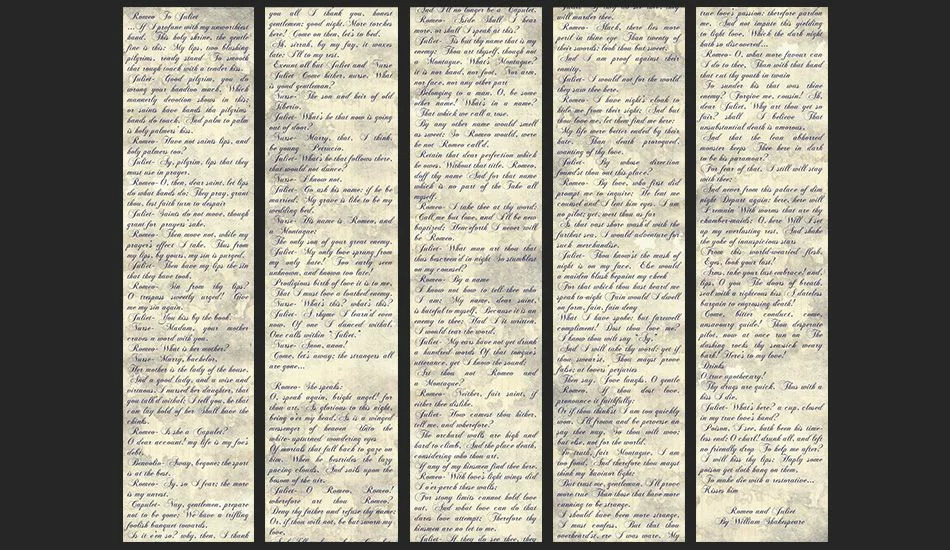 Romeo To Juliet
If I profane with my unworthiest
hand. This holy shrine, the gentle
fine is this: My lips, two blushing
pilgrims, ready stand To smooth
that rough touch with a tender kiss.
Juliet- Good pilgrim, you do
wrong your hand too much, Which
mannerly devotion shows in this;
or saints have hands the pilgrims'
hands do touch, And palm to palm
is holy palmers' kiss.
Romeo- Have not saints lips, and
holy palmers too?
Juliet- Ay, pilgrim, lips that they
must use in prayer.
Romeo- O, then, dear saint, let lips
do what hands do; They pray, grant
thou, lest faith turn to despair
Juliet- Saints do not move, though
grant for prayers' sake.
Romeo- Then move not, while my
prayer's effect I take. Thus from
my lips, by yours, my sin is purged.
Juliet- Then have my lips the sin
that they have took.
Romeo- Sin from thy lips?
O trespass sweetly urged! Give
me my sin again.
Juliet- You kiss by the book.
Nurse- Madam, your mother
craves a word with you.
Romeo- What is her mother?
Nurse- Marry, bachelor,
Her mother is the lady of the house,
And a good lady, and a wise and
virtuous: I nursed her daughter, that
you talk'd withal; I tell you, he that
can lay hold of her Shall have the
chinks.
Romeo- Is she a Capulet?
O dear account! my life is my foe's
debt.
Benvolio- Away, begone; the sport
is at the best.
Romeo- Ay, so I fear; the more
is my unrest.
Capulet- Nay, gentlemen, prepare
not to be gone; We have a trifling
foolish banquet towards.
Is it e'en so? why, then, I thank
you all I thank you, honest
gentlemen; good night. More torches
here! Come on then, let's to bed.
Ah, sirrah, by my fay, it waxes
late: I'll to my rest.
Exeunt all but Juliet and Nurse
Juliet- Come hither, nurse. What
is yond gentleman?
Nurse- The son and heir of old
Tiberio.
Juliet- What's he that now is going
out of door?
Nurse- Marry, that, I think,
be young Petrucio.
Juliet- What's he that follows there,
that would not dance?
Nurse- I know not.
Juliet- Go ask his name: if he be
married. My grave is like to be my
wedding bed.
Nurse- His name is Romeo, and
a Montague;
The only son of your great enemy.
Juliet- My only love sprung from
my only hate! Too early seen
unknown, and known too late!
Prodigious birth of love it is to me,
That I must love a loathed enemy.
Nurse- What's this? what's this?
Juliet- A rhyme I learn'd even
now. Of one I danced withal.
One calls within 'Juliet.'
Nurse- Anon, anon!
Come, let's away; the strangers all
are gone...
Romeo- She speaks:
O, speak again, bright angel! for
thou art. As glorious to this night,
being o'er my head, As is a winged
messenger of heaven Unto the
white-upturned wondering eyes
Of mortals that fall back to gaze on
him. When he bestrides the lazy
pacing clouds, And sails upon the
bosom of the air.
Juliet- O Romeo, Romeo!
wherefore art thou Romeo?
Deny thy father and refuse thy name;
Or, if thou wilt not, be but sworn my
love,
And I'll no longer be a Capulet.
Romeo- Aside Shall I hear
more, or shall I speak at this?
Juliet- 'Tis but thy name that is my
enemy; Thou art thyself, though not
a Montague. What's Montague?
it is nor hand, nor foot, Nor arm,
nor face, nor any other part
Belonging to a man. O, be some
other name! What's in a name?
That which we call a rose.
By any other name would smell
as sweet; So Romeo would, were
he not Romeo call'd.
Retain that dear perfection which
he owes. Without that title. Romeo,
doff thy name And for that name
which is no part of thee Take all
myself.
Romeo- I take thee at thy word:
Call me but love, and I'll be new
baptized; Henceforth I never will
be Romeo.
Juliet- What man art thou that
thus bescreen'd in night So stumblest
on my counsel?
Romeo- By a name
I know not how to tell thee who
I am: My name, dear saint,
is hateful to myself, Because it is an
enemy to thee; Had I it written,
I would tear the word.
Juliet- My ears have not yet drunk
a hundred words Of that tongue's
utterance, yet I know the sound:
Art thou not Romeo and
a Montague?
Romeo- Neither, fair saint, if
either thee dislike.
Juliet- How camest thou hither,
tell me, and wherefore?
The orchard walls are high and
hard to climb, And the place death,
considering who thou art,
If any of my kinsmen find thee here.
Romeo- With love's light wings did
I o'er-perch these walls;
For stony limits cannot hold love
out, And what love can do that
dares love attempt; Therefore thy
kinsmen are no let to me.
Juliet- If they do see thee, they
will murder thee.
Romeo- Alack, there lies more
peril in thine eye Than twenty of
their swords: look thou but sweet,
And I am proof against their
enmity.
Juliet- I would not for the world
they saw thee here.
Romeo- I have night's cloak to
hide me from their sight; And but
thou love me, let them find me here:
My life were better ended by their
hate, Than death prorogued,
wanting of thy love.
Juliet- By whose direction
found'st thou out this place?
Romeo- By love, who first did
prompt me to inquire; He lent me
counsel and I lent him eyes. I am
no pilot; yet, wert thou as far
As that vast shore wash'd with the
farthest sea, I would adventure for
such merchandise.
Juliet- Thou know'st the mask of
night is on my face, Else would
a maiden blush bepaint my cheek
For that which thou hast heard me
speak to-night Fain would I dwell
on form, fain, fain deny
What I have spoke: but farewell
compliment! Dost thou love me?
I know thou wilt say 'Ay,'
And I will take thy word: yet if
thou swear'st, Thou mayst prove
false; at lovers' perjuries
Then say, Jove laughs. O gentle
Romeo, If thou dost love,
pronounce it faithfully:
Or if thou think'st I am too quickly
won, I'll frown and be perverse an
say thee nay, So thou wilt woo;
but else, not for the world.
In truth, fair Montague, I am
too fond, And therefore thou mayst
think my havior light:
But trust me, gentleman, I'll prove
more true Than those that have more
cunning to be strange.
I should have been more strange,
I must confess, But that thou
overheard'st, ere I was ware, My
true love's passion: therefore pardon
me, And not impute this yielding
to light love, Which the dark night
hath so discovered...
Romeo- O, what more favour can
I do to thee, Than with that hand
that cut thy youth in twain
To sunder his that was thine
enemy? Forgive me, cousin! Ah,
dear Juliet, Why art thou yet so
fair? shall I believe That
unsubstantial death is amorous,
And that the lean abhorred
monster keeps Thee here in dark
to be his paramour?
For fear of that, I still will stay
with thee;
And never from this palace of dim
night Depart again: here, here will
I remain With worms that are thy
chamber-maids; O, here Will I set
up my everlasting rest, And shake
the yoke of inauspicious stars
From this world-wearied flesh.
Eyes, look your last!
Arms, take your last embrace! and,
lips, O you The doors of breath,
seal with a righteous kiss A dateless
bargain to engrossing death!
Come, bitter conduct, come,
unsavoury guide! Thou desperate
pilot, now at once run on The
dashing rocks thy seasick weary
bark! Here's to my love!
Drinks
O true apothecary!
Thy drugs are quick. Thus with a
kiss I die.
Juliet- What's here? a cup, closed
in my true love's hand?
Poison, I see, hath been his timeless
end: O churl! drunk all, and left
no friendly drop To help me after?
I will kiss thy lips; Haply some
poison yet doth hang on them,
To make die with a restorative...
Kisses him
Romeo and Juliet
By William Shakespeare